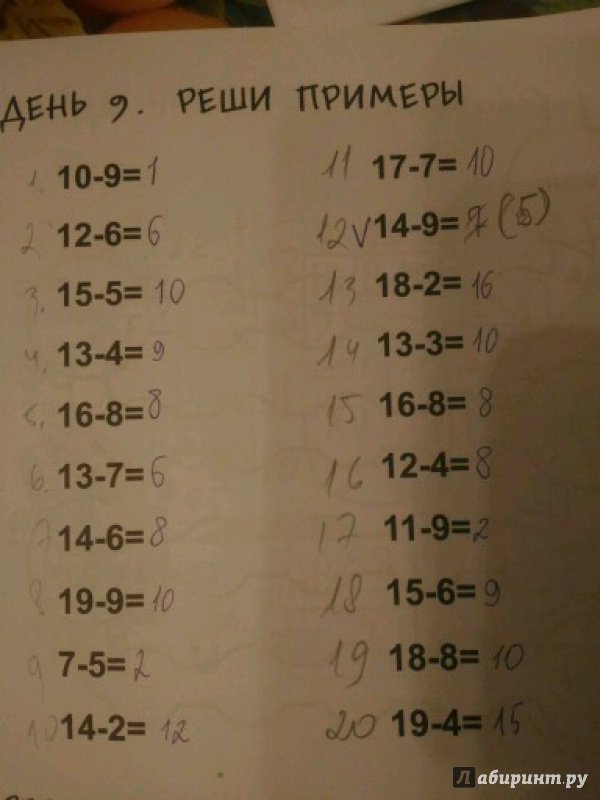 ДЕНЬ 9. РЕШИ ПРИМЕРЫ
1. 10-9=1
2 12-6=6
3. 15-5=10
4. 13-4=9
5. 16-8=8
6. 13-7=6
7 14-6=8
8 19-9=10
9 7-5=2
10 14-2=12
11 17-7=10
12 V 14-9= (5)
13 18-2=16
14 13-3=10
15 16-8=8
16 12-4=8
17 11-9=2
18 15-6=9
19 18-8=10
20 19-4=15
Лабиринт.ру